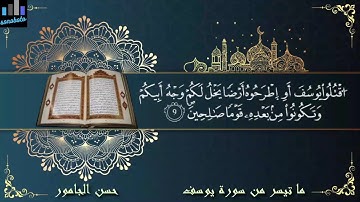 sonobato
اقْتُلُوا يُوسُفَ أَوِ اطْرَحُوهُ أَرْضًا يَخْلُ لَكُمْ وَجْهُ أَبِيكُمْ
وَتَكُونُوا مِنْ بَعْدِهِ قَوْمًا صَالِحِينَ ٩
ما تيسر من سورة يوسف
حسن الجامور